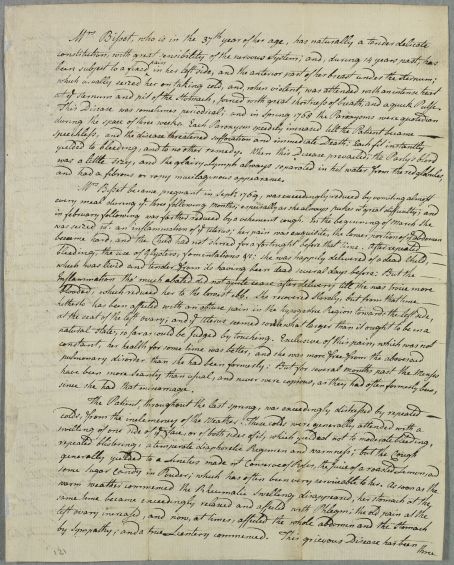 Mrs Bisset, who is in the 37th year of her age, has naturally a tender delicate
constitution, with great sensibility of the nervous System; and, during 14 years past, has
been subject to a fixed pain in her left side, and the anterior part of her breast under the sternum;
which usually seized her on taking cold, and, when violent, was attended with an intense heat
at ye Sternum and pit of the stomach, joined with great shortness of breath, and a quick Pulse.
This Disease was sometimes periodical; and in Spring 1768 the Paroxysms were quotidian
during the space of three weeks. Each Paroxysm speedily increased till the Patient became
speechless, and the disease threatened suffocation and immediate Death. Each fit instantly
yielded to bleeding, and to no other remedy. When this Disease prevailed the Party's blood
was a little sizy, and the glairy Lymph always separated in hot water from the red globules,
and had a fibrous or ropy mucilagenous appearance.
Mrs Bisset became pregnant in Septr 1769, was exceedingly reduced by vomiting almost
every meal during ye three following months, especially as she always pukes wt great difficulty; and
in february following was farther reduced by a vehement cough. In the beginning of March she
was seized wt an inflammation of ye uterus; her pain was exquisite, the lower portion of ye abdomen
became hard, and the Child had not stirred for a fortnight before that time. After repeated
bleeding, the use of Glysters, fomentations &c; she was happily delivered of a dead Child;
which was livid and tender from its having been dead several days before: But the
Inflammation tho' much abated did not quite cease after delivery till she was twice more
blooded; which reduced her to the lowest ebb. She recovered slowly; but from that time
hitherto has been affected with an obtuse pain in the hypogastric Region towards the left side,
at the seat of the left ovary; and ye uterus seemed somewhat larger than it ought to be in a
natural state; so far as could be judged by touching. Exclusive of this pain, which was not
constant, her health for some time was better, and she was more free from the abovesaid
pulmonary disorder than she had been formerly: But for several months past the Menses
have been more scanty than usual, and never were copious, as they had often formerly been
since she had that miscarriage.
The Patient, throughout the last spring, was exceedingly distressed by repeated
colds, from the inclemency of the weather. These colds were generally attended with a
swelling of one side of ye face, or of both sides of it; which yielded not to moderate bleeding,
repeated blisterings, a temperate diaphoretic Regimen and warmness; but the Cough
generally yielded to a Linctus made of Conserve of Roses, the juice of a roasted Lemon, and
some Sugar Candy in Powder; which has often been very serviceable to her. As soon as the
warm weather commenced the Rheumatic Swelling disappeared, her stomach at the
same time became exceedingly relaxed and affected with Phlegm; the old pain at the
left ovary increased, and now, at times, affected the whole abdomen and the Stomach
by Sympathy; and a true Lientery commenced. This grievous Disease has been
three